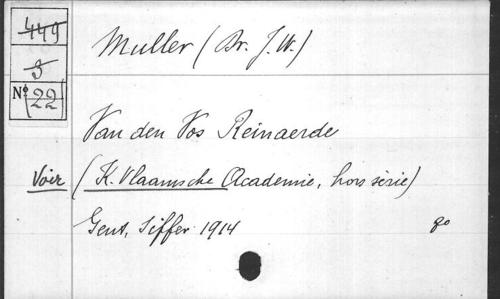 449
3
Nº 22
Muller (Dr. J. W.)
Van den Vos Reinaerde
Voir (K. Vlaamsche Academie, hors série)
Gent, Siffer 1914 8o